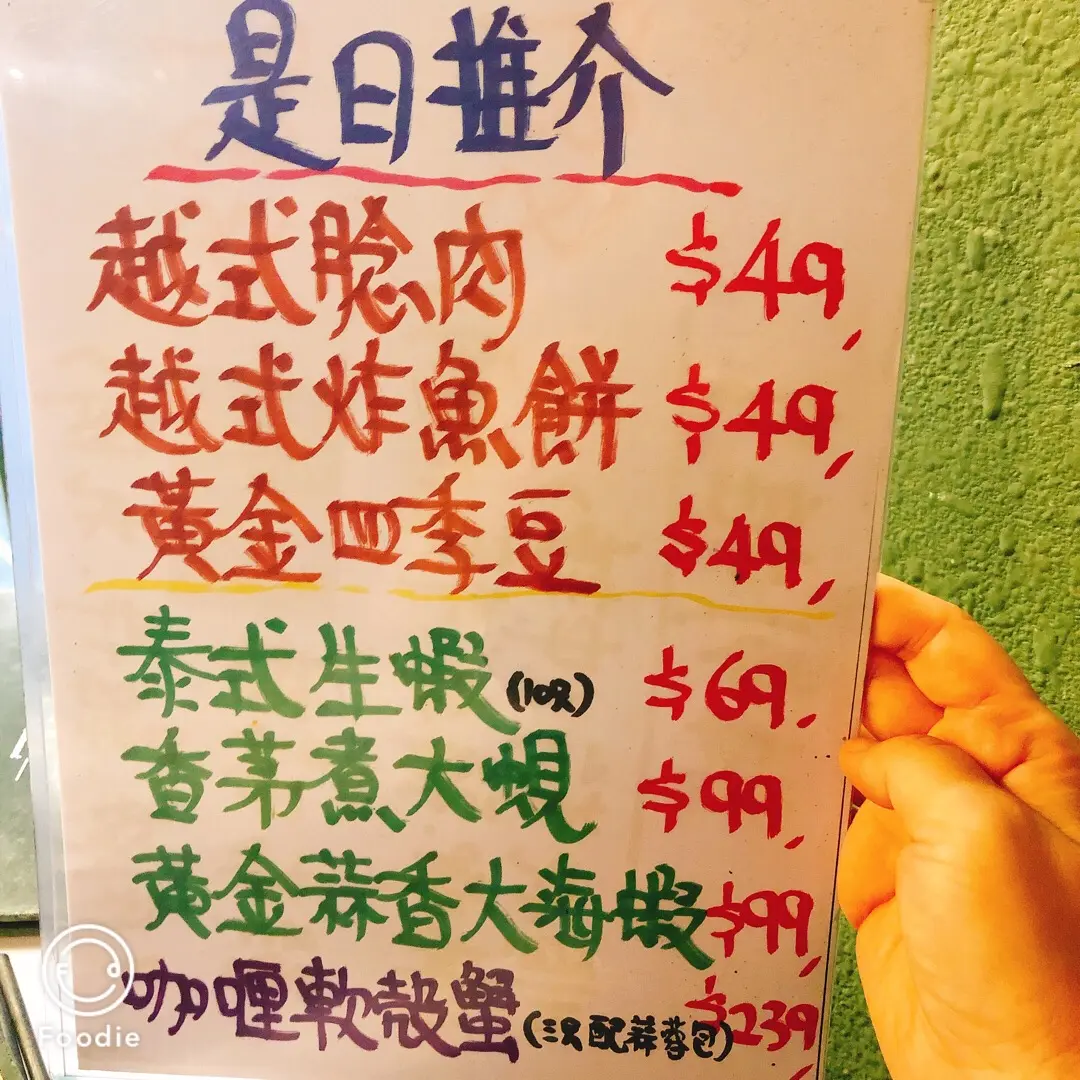 是日推介
越式腍肉 $49,
越式炸魚餅 $49,
黃金四季豆 $49,
泰式生蝦(10只) $69,
香茅煮大蜆 $99,
黃金蒜香大海蝦 $99,
咖喱軟殼蟹(三只配蒜蓉包) $239,
Foodie